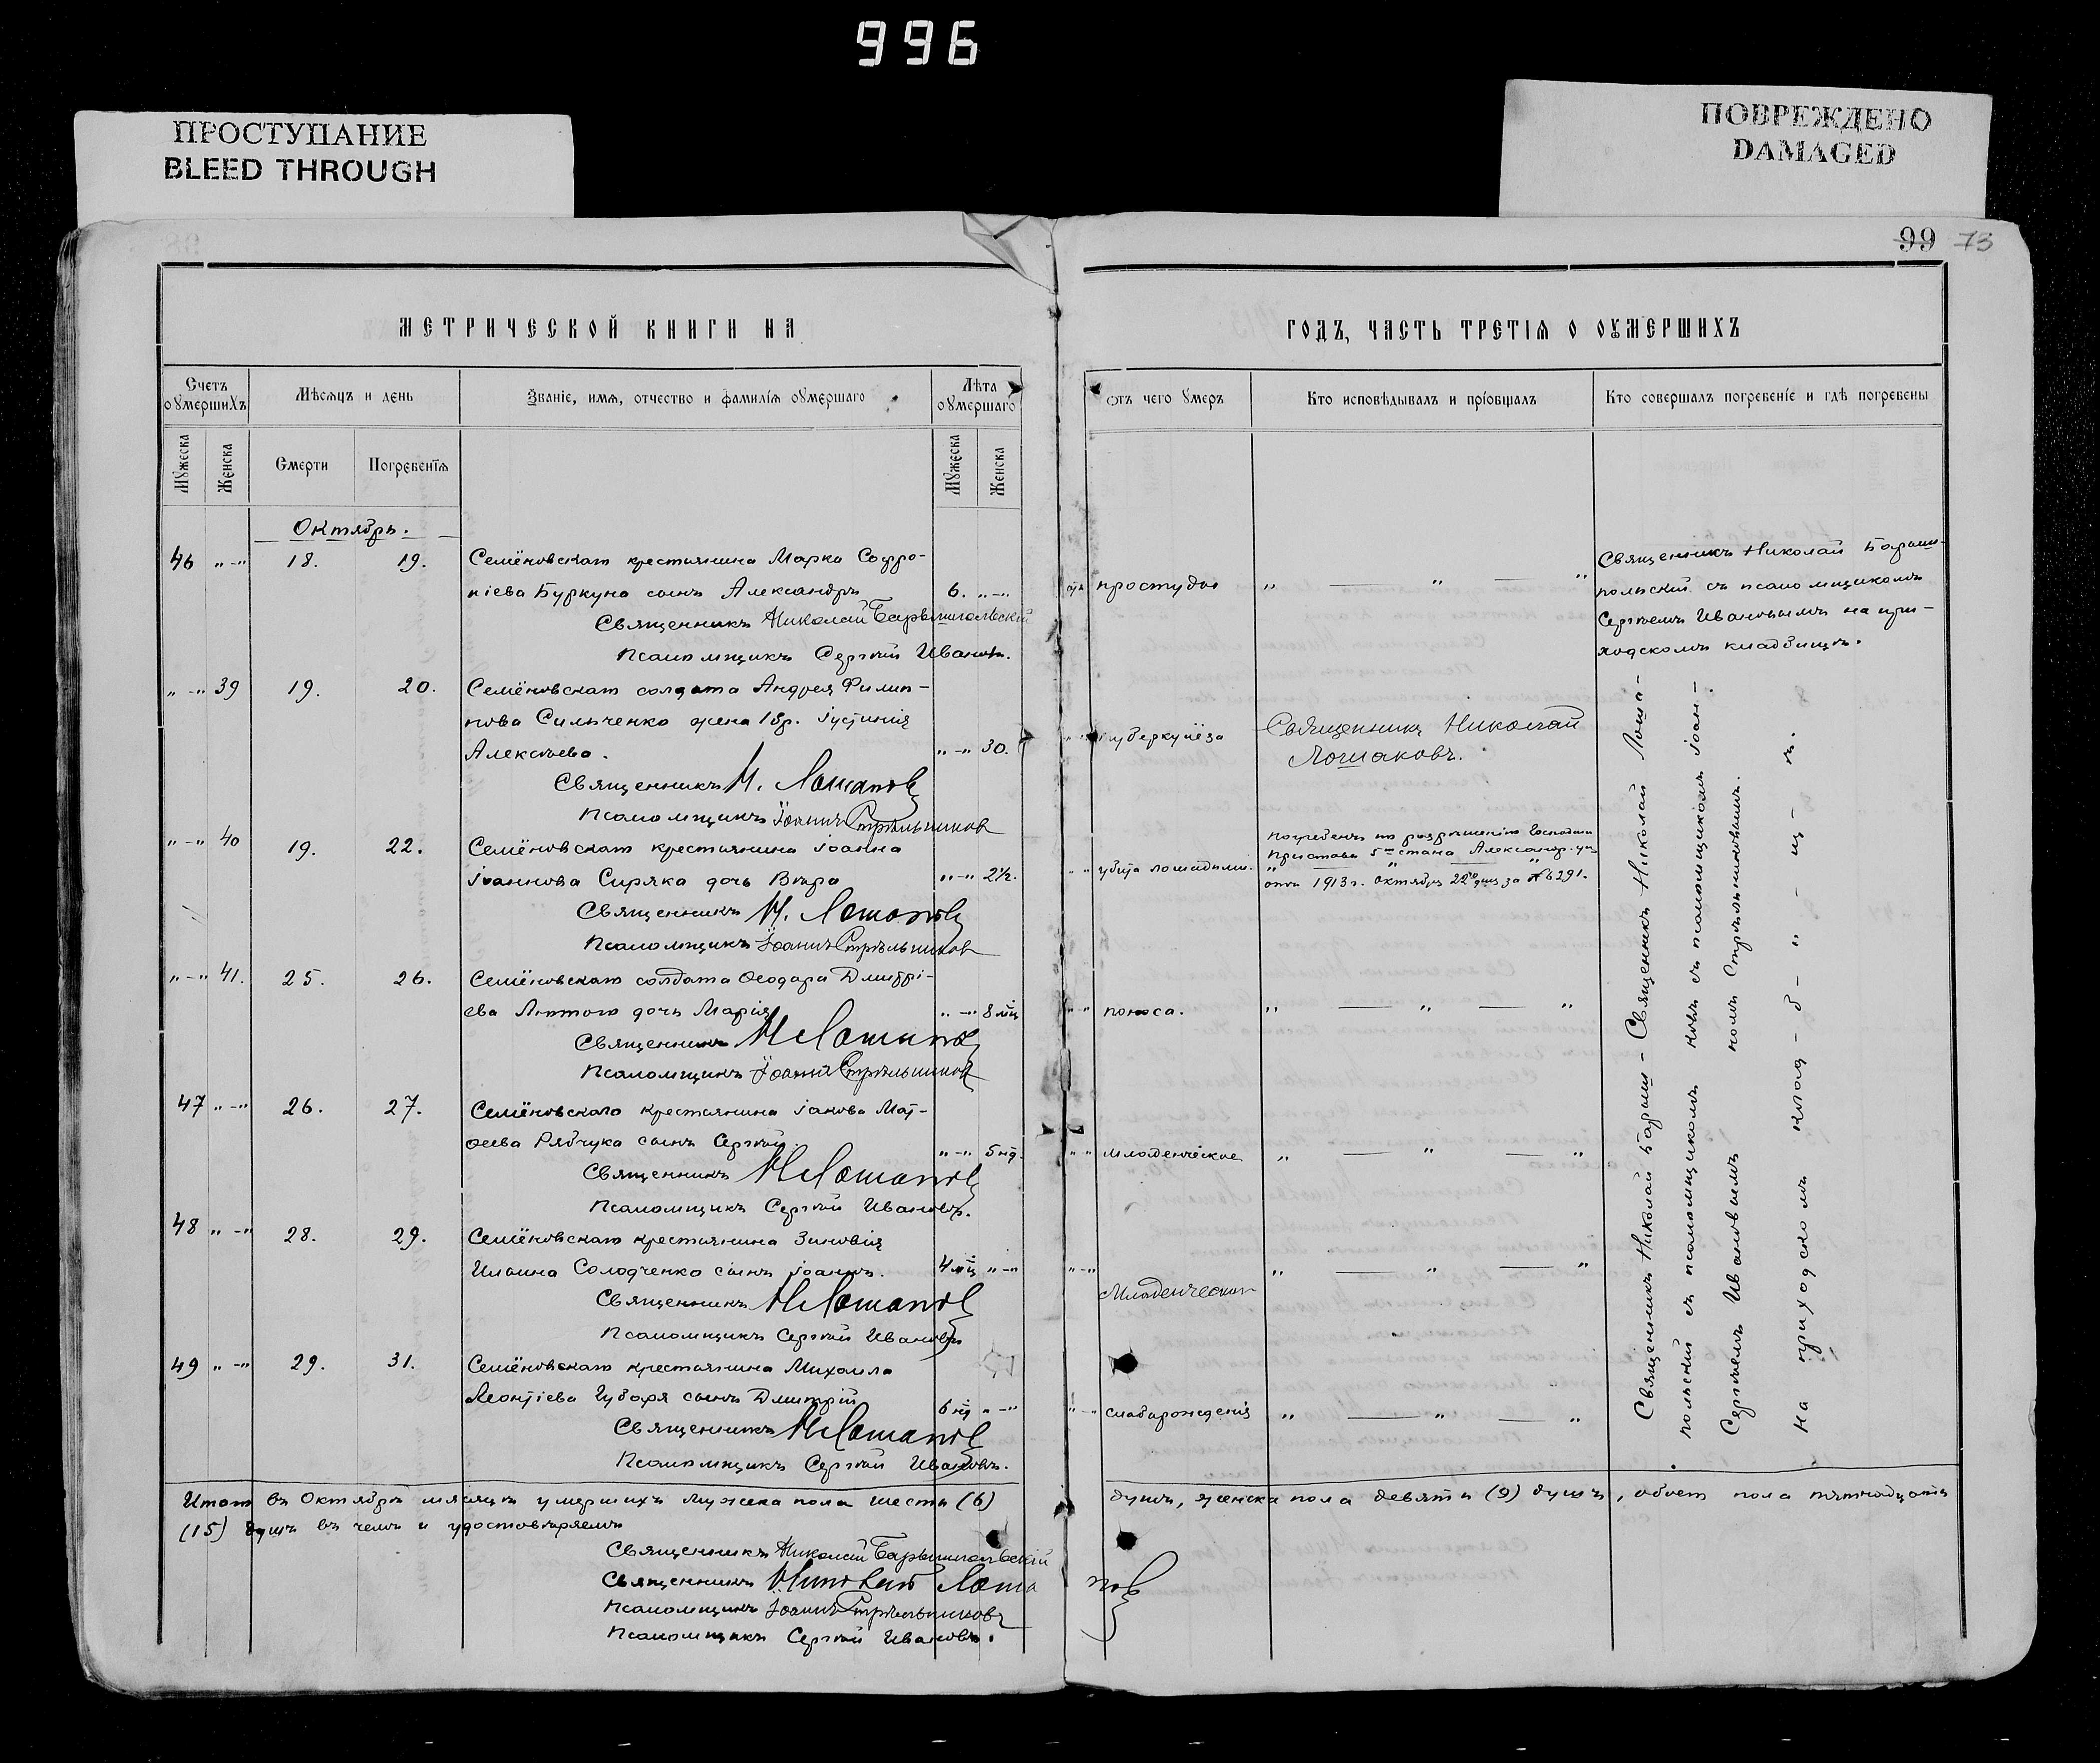 996
ПРОСТУПАНИЕ
BLEED THROUGH
ПОВРЕЖДЕНО
DAMAGED
99 73
МЕТРИЧЕСКОЙ КНИГИ НА
ГОДЪ, ЧАСТЬ ТРЕТІѦ О ОУМЕРШИХЪ
Счетъ оумершихъ
Мѣсяцъ и день
Званіе, имя, отчество и фамилія оумершаго
Лѣта оумершаго
отъ чего умеръ
Кто исповѣдывалъ и пріобщалъ
Кто совершалъ погребеніе и гдѣ погребены
Мужеска
Женска
Смерти
Погребенія
Мужеска
Женска
Октябрь.
46 „-„ 18. 19. Семёновскаго крестьянина Марка Софро-
ніева Буркуна сынъ Александръ 6. „-„ простуды „ — „ — „
Священникъ Николай Барышпольскій
Псаломщикъ Сергѣй Ивановъ.
Священникъ Николай Барыш-
польскій съ псаломщикомъ
Сергѣемъ Ивановымъ на при-
ходскомъ кладбищѣ.
„-„ 39 19. 20. Семёновскаго солдата Андрея Филип-
пова Сильченко жена 1 бр. Іустинія
Алексѣева. „-„ 30. туберкулёза
Священникъ Николай
Лошаковъ.
Священникъ Н. Лошаковъ
Псаломщикъ Іоаннъ Стрѣльниковъ
„-„ 40 19. 22. Семёновскаго крестьянина Іоанна
Іоаннова Сиряка дочь Вѣра „-„ 2½. убита лошадьми.
Погребенъ по разрѣшенію Господина
Пристава 5го стана Александр. у.
отъ 1913 г. октября 22го дня за № 6291.
Священникъ Н. Лошаковъ
Псаломщикъ Іоаннъ Стрѣльниковъ
„-„ 41. 25. 26. Семёновскаго солдата Ѳеодора Дмитрі-
ева Лютого дочь Марія „-„ 8 мц поноса. „ — „ — „
Священникъ Н Лошаковъ
Псаломщикъ Іоаннъ Стрѣльниковъ
47 „-„ 26. 27. Семёновскаго крестьянина Іакова Мат-
ѳеева Рябчука сынъ Сергѣй. „-„ 5 нд. младенческое „ — „ — „
Священникъ Н Лошаковъ
Псаломщикъ Сергѣй Ивановъ.
48 „-„ 28. 29. Семёновскаго крестьянина Зиновія
Ильина Солодченко сынъ Іоаннъ. 4 мц „-„ Младенческой „ — „ — „
Священникъ Н Лошаковъ
Псаломщикъ Сергѣй Ивановъ
49 „-„ 29. 31. Семёновскаго крестьянина Михаила
Леонтіева Губаря сынъ Дмитрій 6 нд „-„ слаборожденія „ — „ — „
Священникъ Н Лошаковъ
Псаломщикъ Сергѣй Ивановъ.
Священникъ Николай Барыш- Священникъ Николай Лоша-
польскій съ псаломщикомъ ковъ съ псаломщикомъ Іоан-
Сергѣемъ Ивановымъ номъ Стрѣльниковымъ.
на приходскомъ клад-б-„-ищ-ѣ.
Итого въ Октябрѣ мѣсяцѣ умершихъ мужска пола шесть (6) душъ, женска пола девять (9) душъ, обоего пола пятнадцать
(15) душъ въ чемъ и удостовѣряемъ
Священникъ Николай Барышпольскій
Священникъ Николай Лошаковъ
Псаломщикъ Іоаннъ Стрѣльниковъ
Псаломщикъ Сергѣй Ивановъ.